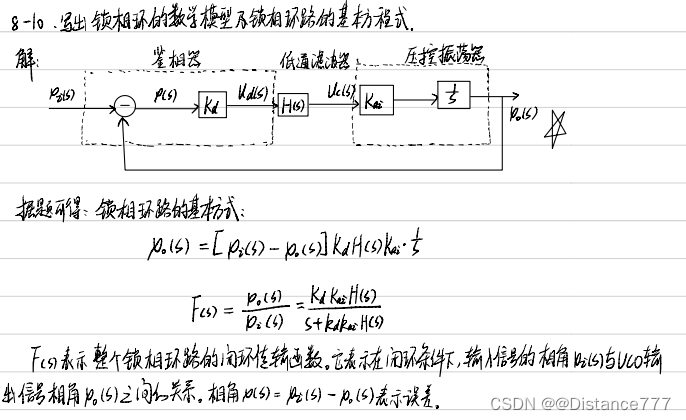 8-10. 写出锁相环的数学模型及锁相环路的基本方程式.
解: 鉴相器 低通滤波器 压控振荡器
Pi(s) − P(s) Kd Ud(s) H(s) Uc(s) Kω 1/s Po(s)
据题可得: 锁相环路的基本方式:
Po(s) = [Pi(s) − Po(s)] Kd H(s) Kω · 1/s
F(s) = Po(s)/Pi(s) = Kd Kω H(s)/S + Kd Kω H(s)
F(s)表示整个锁相环路的闭环传输函数。它表示在闭环条件下,输入信号的相角Pi(s)与VCO输
出信号相角Po(s)之间的关系。相角P(s) = Pi(s) − Po(s)表示误差。
CSDN @@Distance777